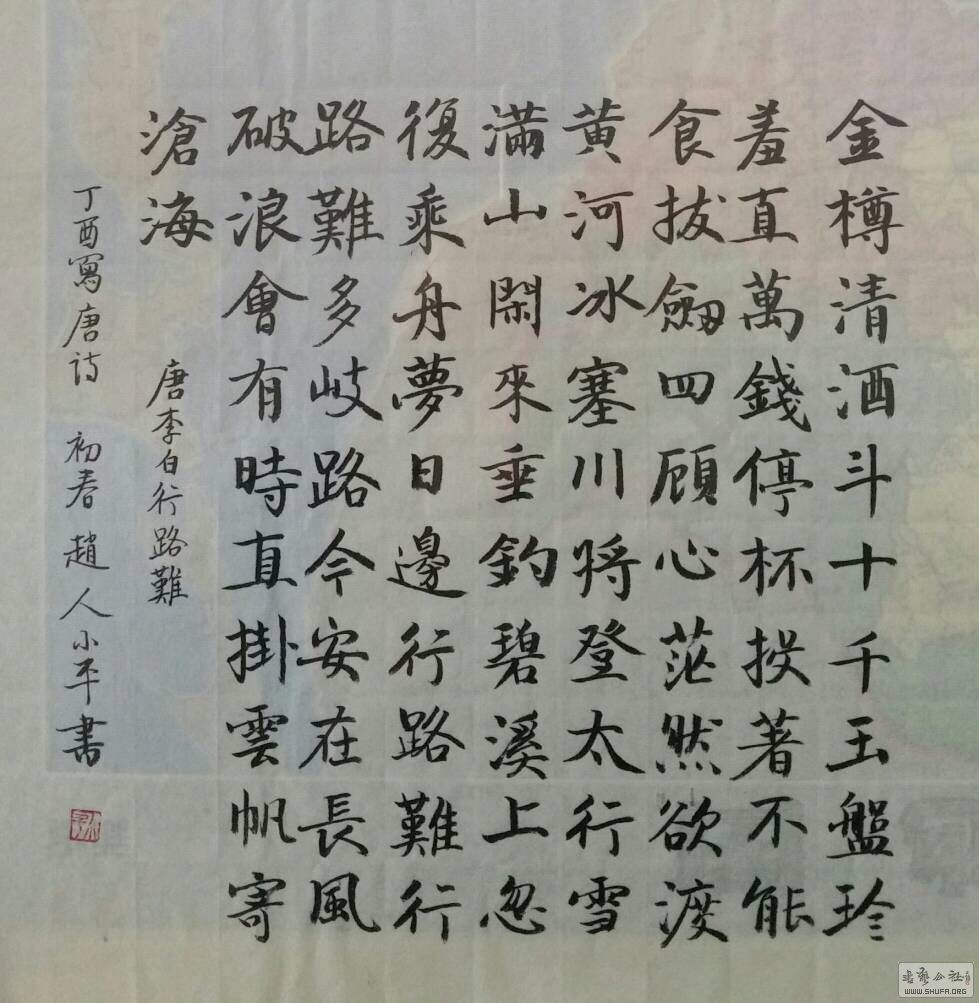 金樽清酒斗十千玉盤珍
羞直萬錢停杯投著不能
食拔劔四顧心茫然欲渡
黄河冰塞川將登太行雪
滿山閑來垂釣碧溪上忽
復乘舟夢日邊行路難行
路難多岐路今安在長風
破浪會有時直掛雲帆寄
滄海
唐李白行路難
丁酉寫唐詩 初春 趙人小平書
書藝公社
WWW.SHUFA.ORG